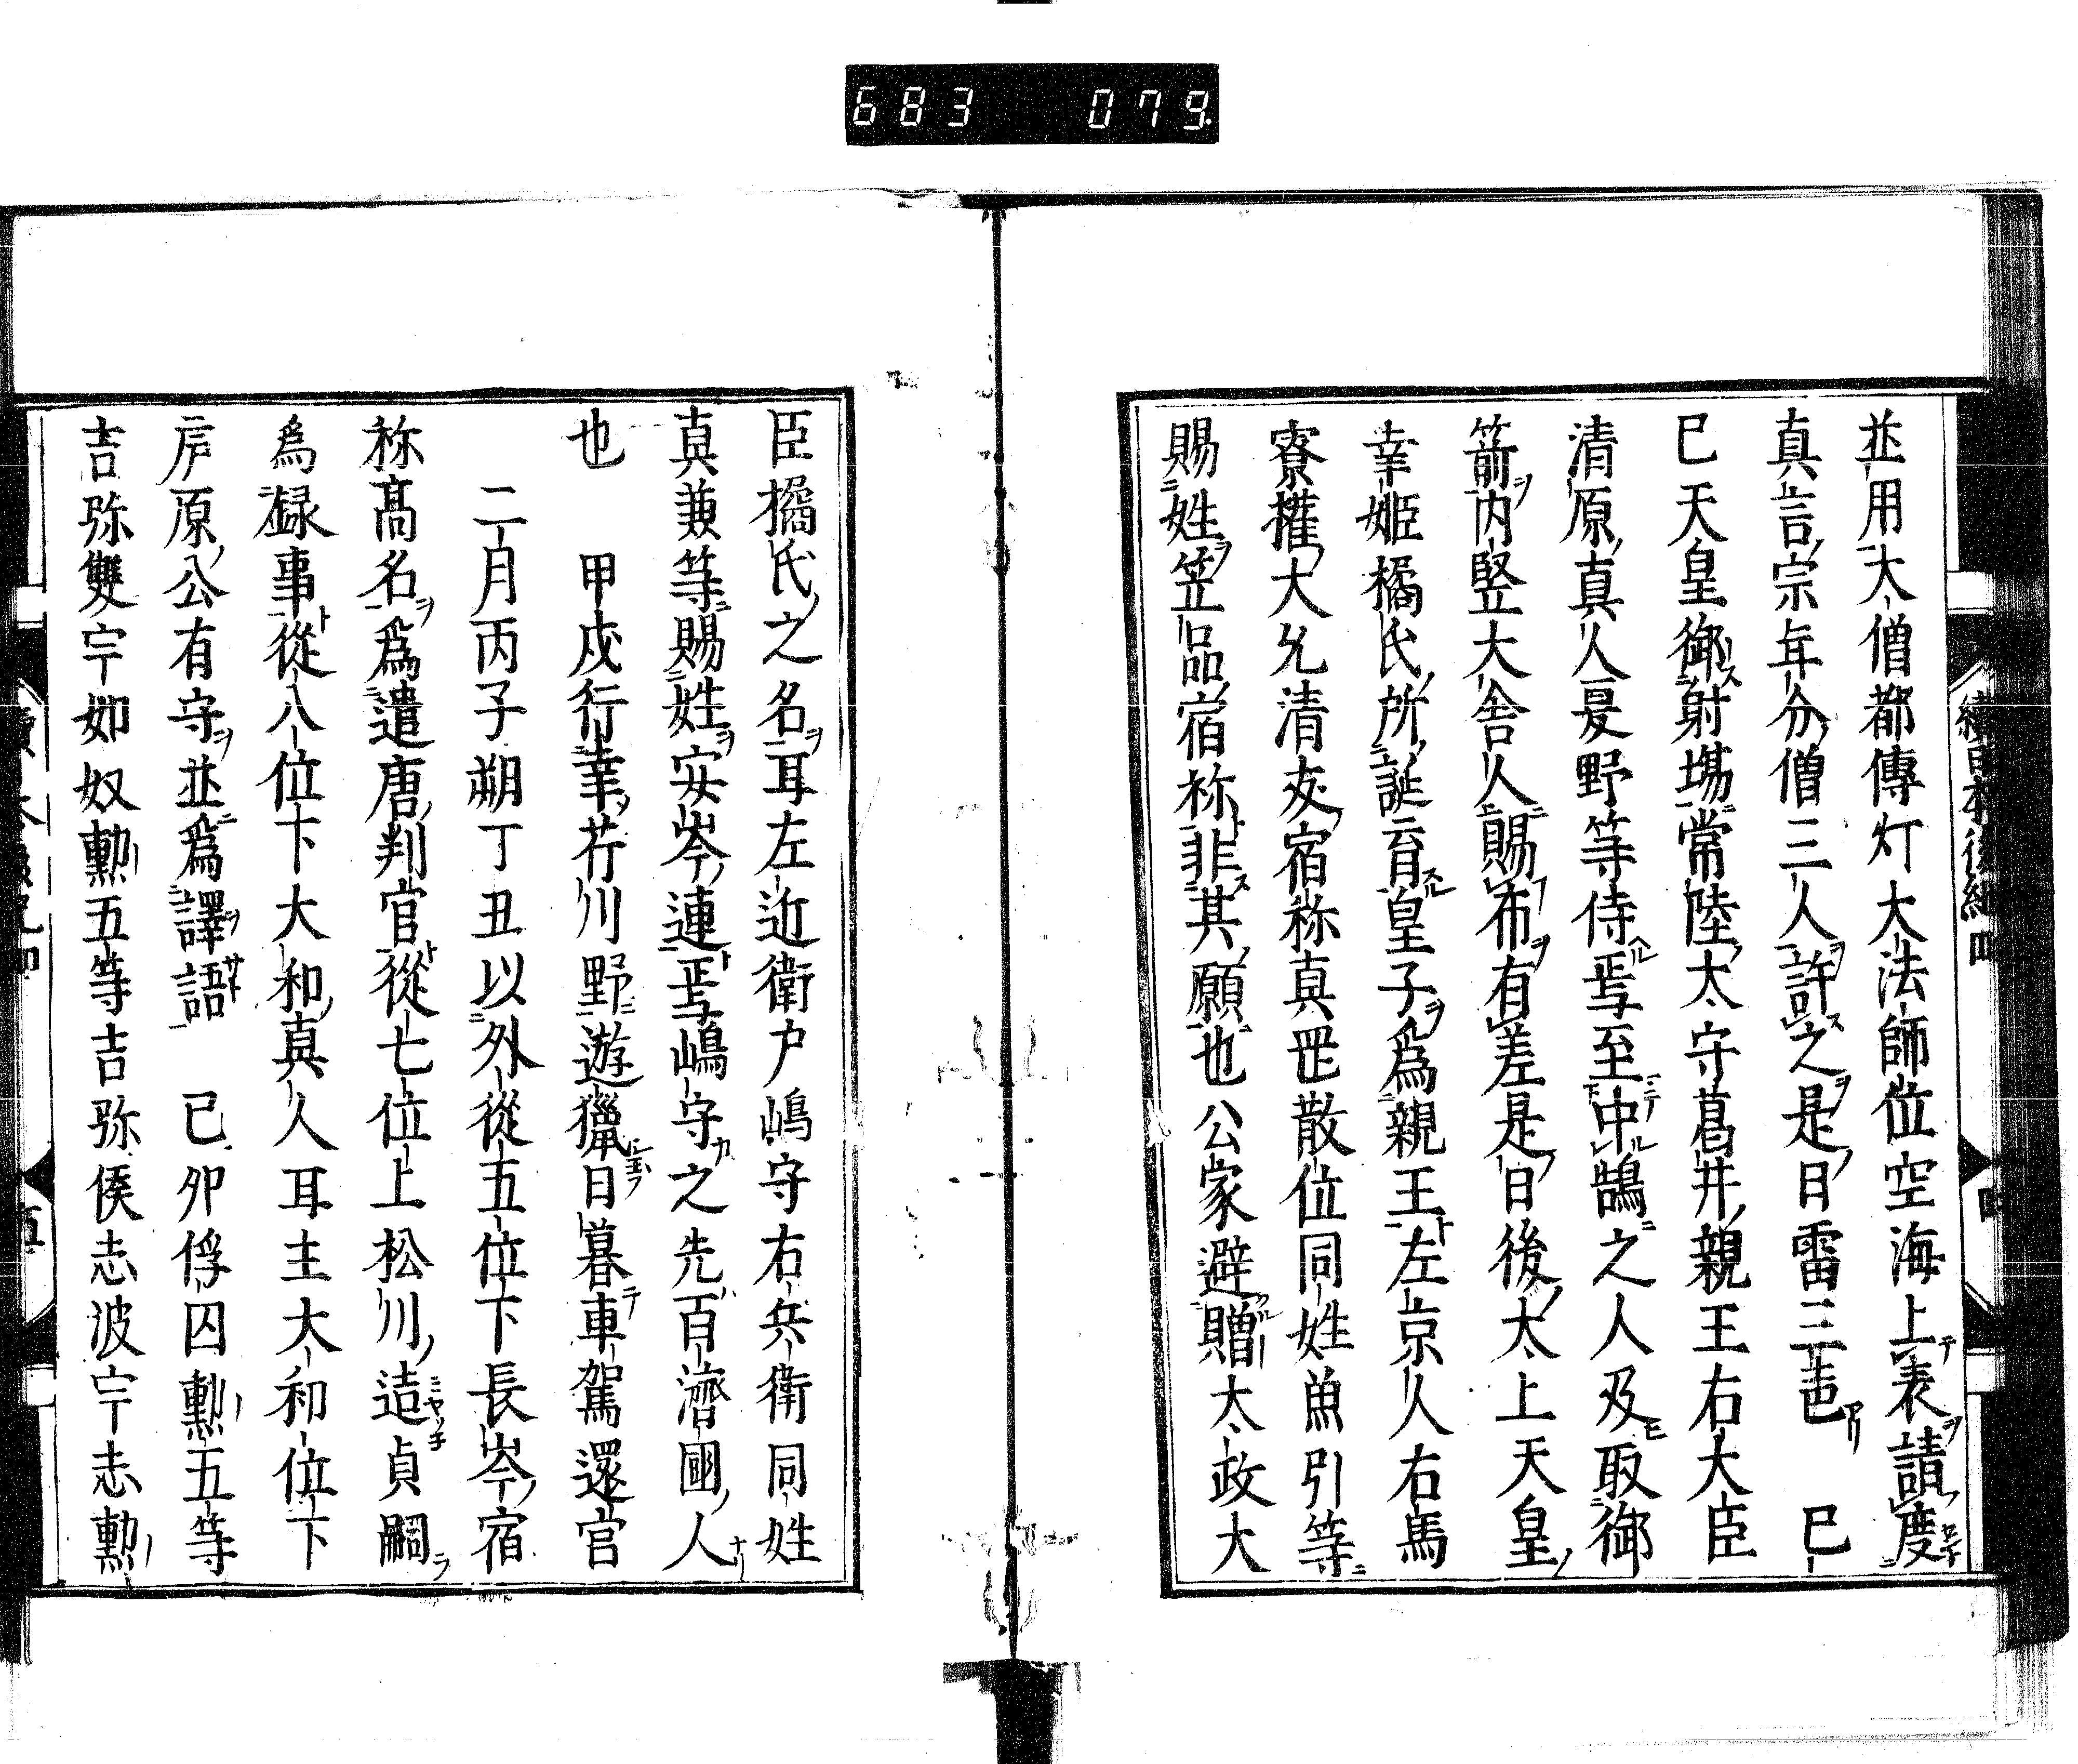 683 079
並用大僧都傳灯大法師位空海上表請度
真言宗年分僧三人許之是日雷三声 已
巳天皇御射場常陸太守葛井親王右大臣
清原真人夏野等侍焉至中鵠之人及取御
箭内竪大舎人賜布有差是日後太上天皇
幸姫橘氏所誕育皇子為親王左京人右馬
寮権大允清友宿祢真罡散位同姓魚引等
賜姓笠品宿祢非其願也公家避贈太政大
臣橘氏之名耳左近衛戸嶋守右兵衛同姓
真兼等賜姓安岑連焉嶋守之先百濟國人
也 甲戌行幸芹川野遊獵日暮車駕還宮
二月丙子朔丁丑以外從五位下長岑宿
祢髙名為遣唐判官從七位上松川造貞嗣
為録事從八位下大和真人耳主大初位下
廬原公有守並為譯語 己卯俘囚勲五等
吉弥雙宇加奴勲五等吉弥侯志波宇志勲